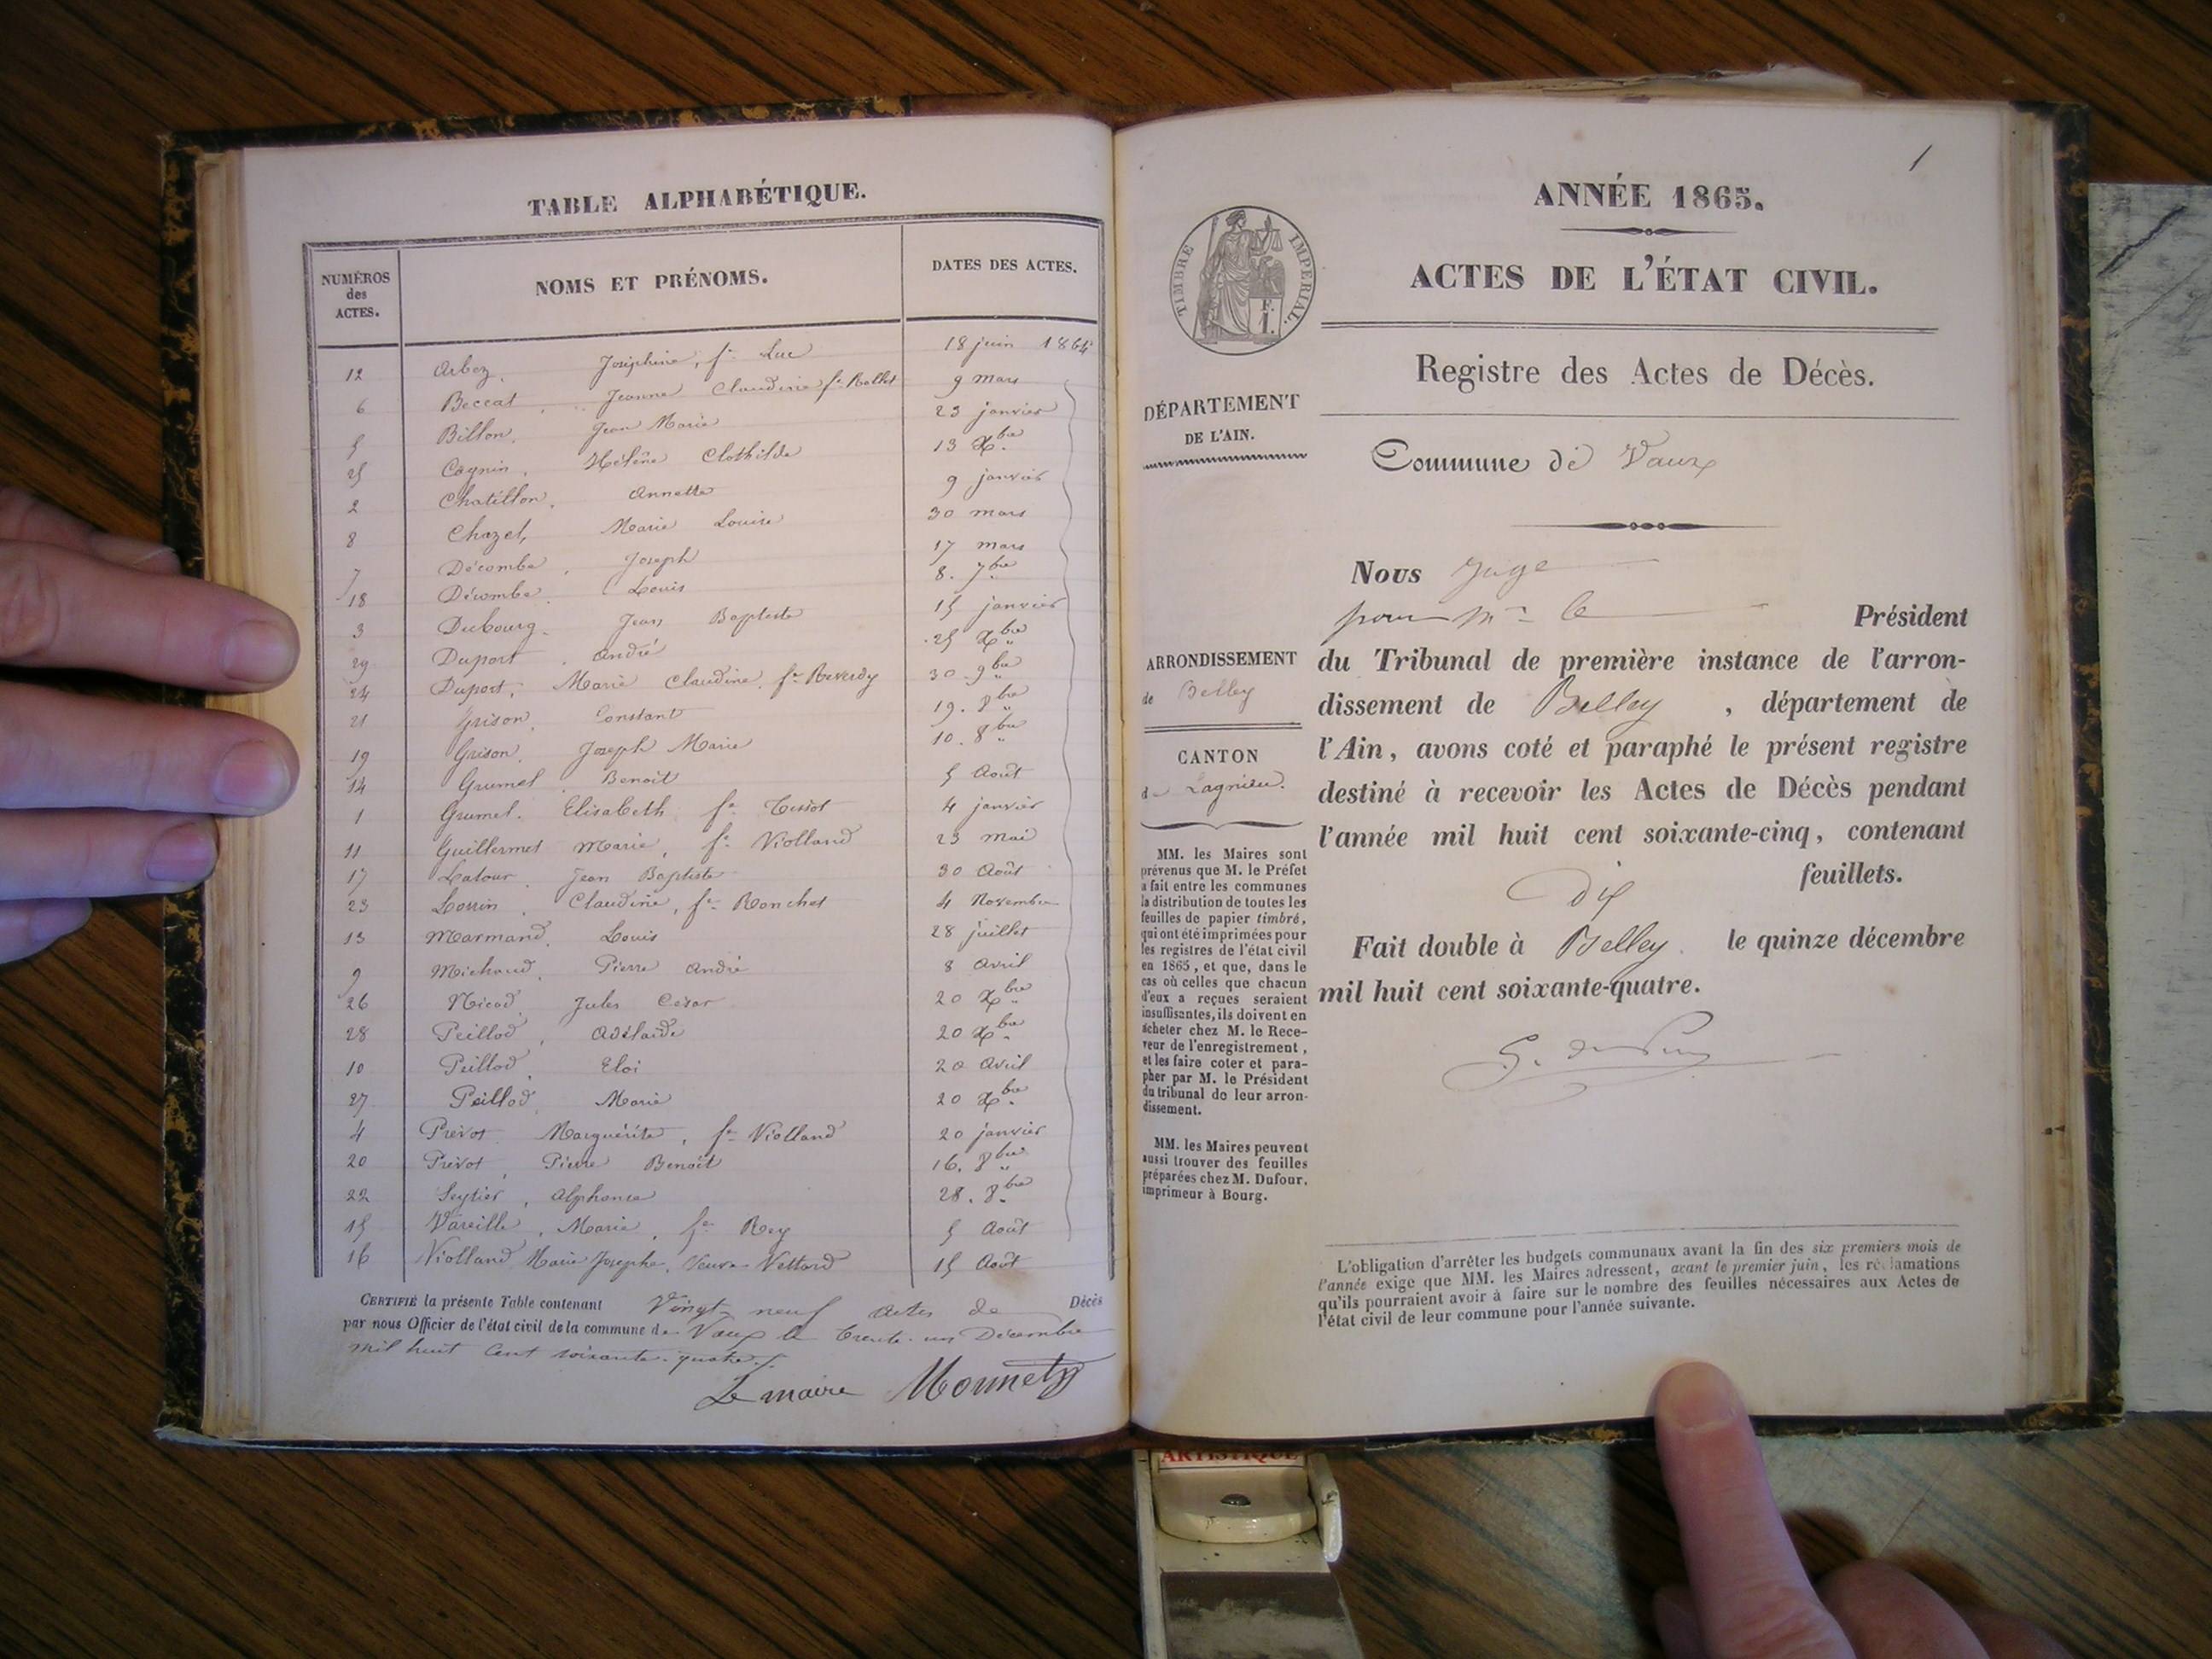 TABLE ALPHABÉTIQUE.
NUMÉROS des ACTES. NOMS ET PRÉNOMS. DATES DES ACTES.
12 Arboz, Joséphine, fe Luc 18 juin 1864
6 Beccat, Jeanne Claudine fe Rollet 9 mars
5 Billon, Jean Marie 23 janvier
25 Cagnin, Hélène Clothilde 13 Xbre
2 Chatillon, Annette 9 janvier
8 Chazel, Marie Louise 30 mars
7 Décombe, Joseph 17 mars
18 Décombe, Louis 8. 7bre
3 Dubourg, Jean Baptiste 15 janvier
29 Duport, André 25 Xbre
24 Duport, Marie Claudine, fe Reverdy 30 9bre
21 Grison, Constant 19. 8bre
19 Grison, Joseph Marie 10. 8bre
14 Grumel, Benoît 5 Août
1 Grumel, Elisabeth fe Tissot 4 janvier
11 Guillermet Marie, fe Violland 23 mai
17 Latour, Jean Baptiste 30 Août
23 Lorrin, Claudine, fe Ronchet 4 Novembre
13 Marmand, Louis 28 juillet
9 Michaud, Pierre André 8 Avril
26 Nicod, Jules César 20 Xbre
28 Peillod, Adélaïde 20 Xbre
10 Peillod, Eloi 20 Avril
27 Peillod, Marie 20 Xbre
4 Prévot, Marguérite, fe Violland 20 janvier
20 Prévot, Pierre Benoît 16. 8bre
22 Seytier, Alphonse 28. 8bre
15 Vareille, Marie, fe Rey 5 Août
16 Violland, Marie Josephe, Veuve Vettard 15 Août
CERTIFIÉ la présente Table contenant Vingt neuf actes de Décès
par nous Officier de l'état civil de la commune de Vaux le trente-un Décembre
mil huit cent soixante-quatre.
Le maire Monnet
1
TIMBRE IMPERIAL.
F.
1.
ANNÉE 1865.
ACTES DE L'ÉTAT CIVIL.
Registre des Actes de Décès.
DÉPARTEMENT
DE L'AIN.
Commune de Vaux
ARRONDISSEMENT
de Belley
CANTON
de Lagnieu.
MM. les Maires sont
prévenus que M. le Préfet
a fait entre les communes
la distribution de toutes les
feuilles de papier timbré,
qui ont été imprimées pour
les registres de l'état civil
en 1865, et que, dans le
cas où celles que chacun
d'eux a reçues seraient
insuffisantes, ils doivent en
acheter chez M. le Rece-
veur de l'enregistrement,
et les faire coter et para-
pher par M. le Président
du tribunal de leur arron-
dissement.
MM. les Maires peuvent
aussi trouver des feuilles
préparées chez M. Dufour,
imprimeur à Bourg.
Nous Juge
pour Mr le Président
du Tribunal de première instance de l'arron-
dissement de Belley, département de
l'Ain, avons coté et paraphé le présent registre
destiné à recevoir les Actes de Décès pendant
l'année mil huit cent soixante-cinq, contenant
dix feuillets.
Fait double à Belley. le quinze décembre
mil huit cent soixante-quatre.
L'obligation d'arrêter les budgets communaux avant la fin des six premiers mois de
l'année exige que MM. les Maires adressent, avant le premier juin, les réclamations
qu'ils pourraient avoir à faire sur le nombre des feuilles nécessaires aux Actes de
l'état civil de leur commune pour l'année suivante.
ARTISTIQUE